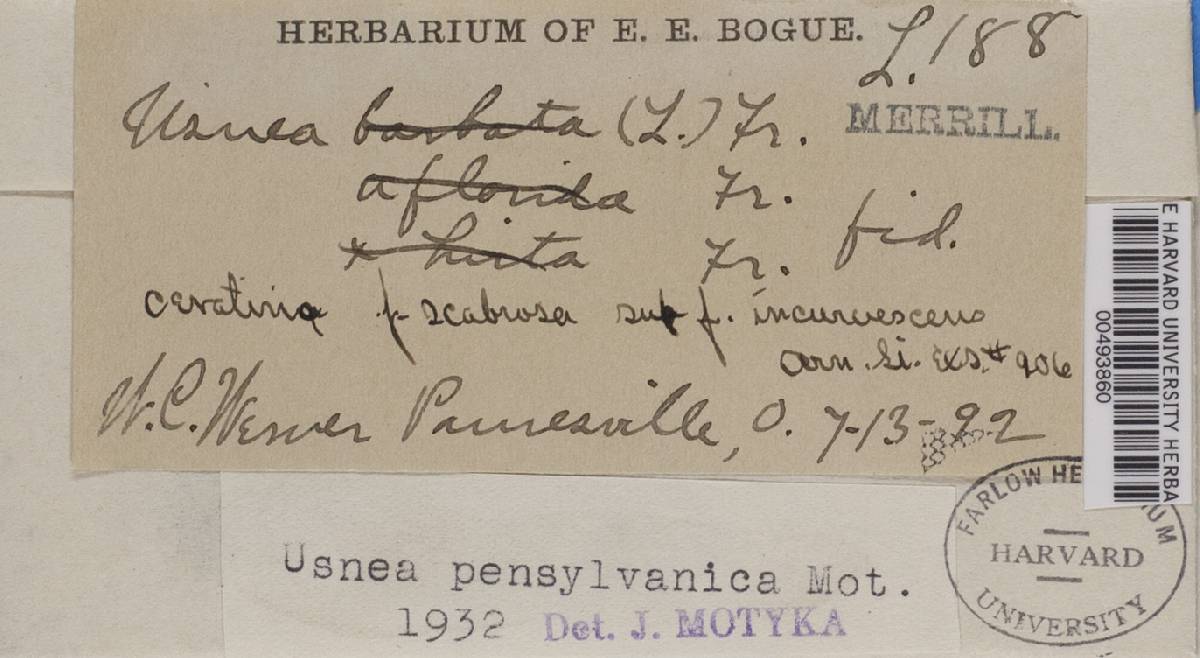 HERBARIUM OF E. E. BOGUE. L. 188
Usnea barbata (L.) Fr. MERRILL.
a florida Fr.
x hirta Fr. fid.
ceratina f. scabrosa sub f. incurvescens
Arn. Li. Exs. # 906
W. C. Werner Painesville, O. 7-13-92
E HARVARD UNIVERSITY HERBA
00493860
FARLOW HE UM
HARVARD
UNIVERSITY
Usnea pensylvanica Mot.
1932 Det. J. MOTYKA